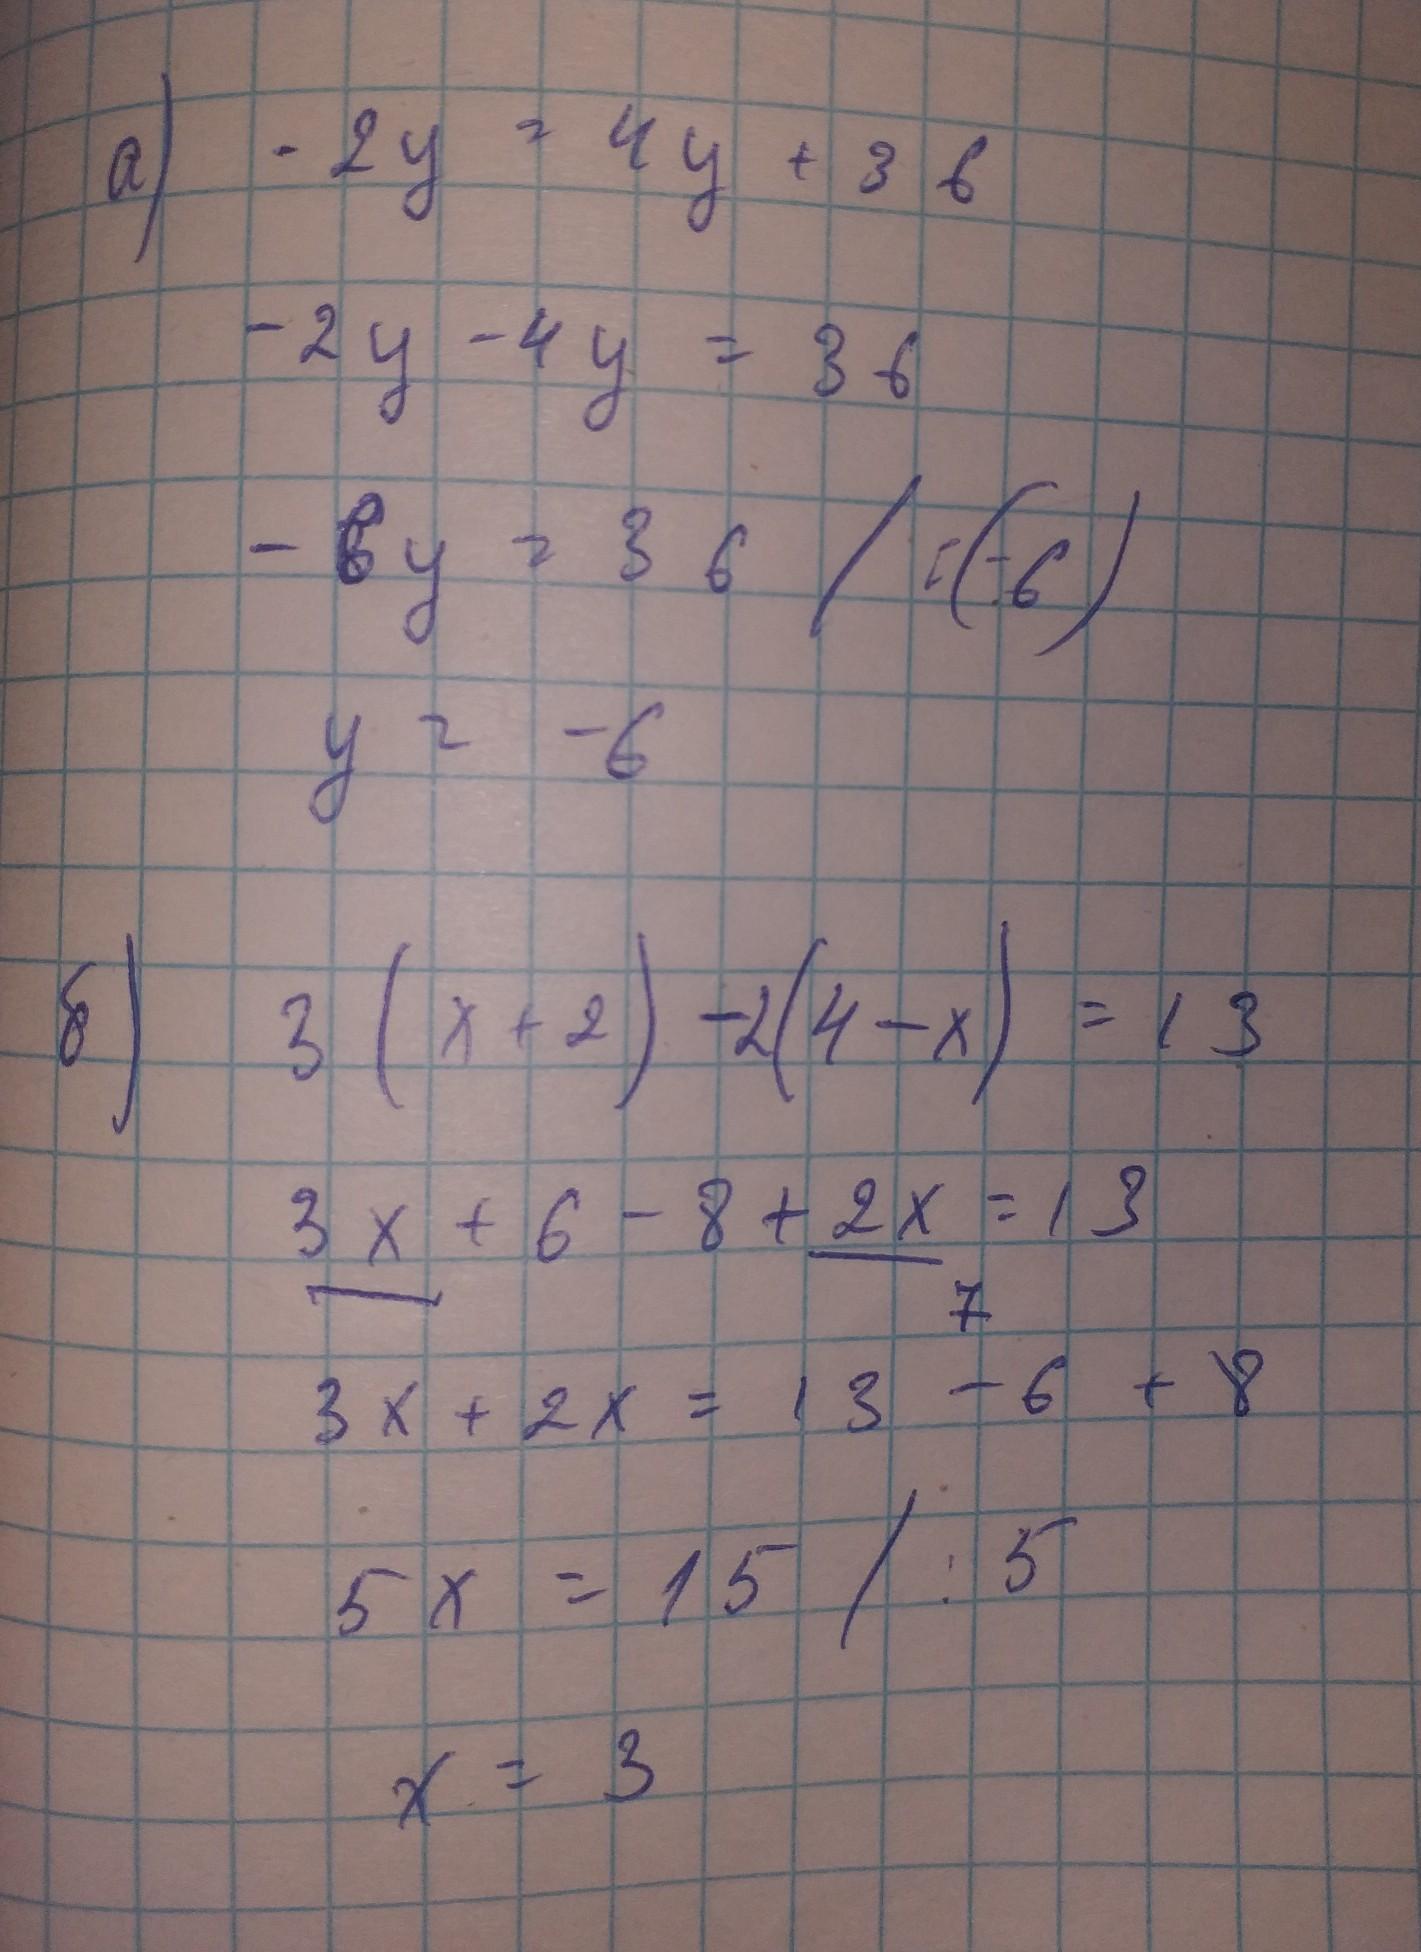 а) -2y = 4y + 36
-2y - 4y = 36
-6y = 36 / :(-6)
y = -6
б) 3(x+2) -2(4-x) = 13
3x + 6 - 8 + 2x = 13
7
3x + 2x = 13 - 6 + 8
5x = 15 / : 5
x = 3